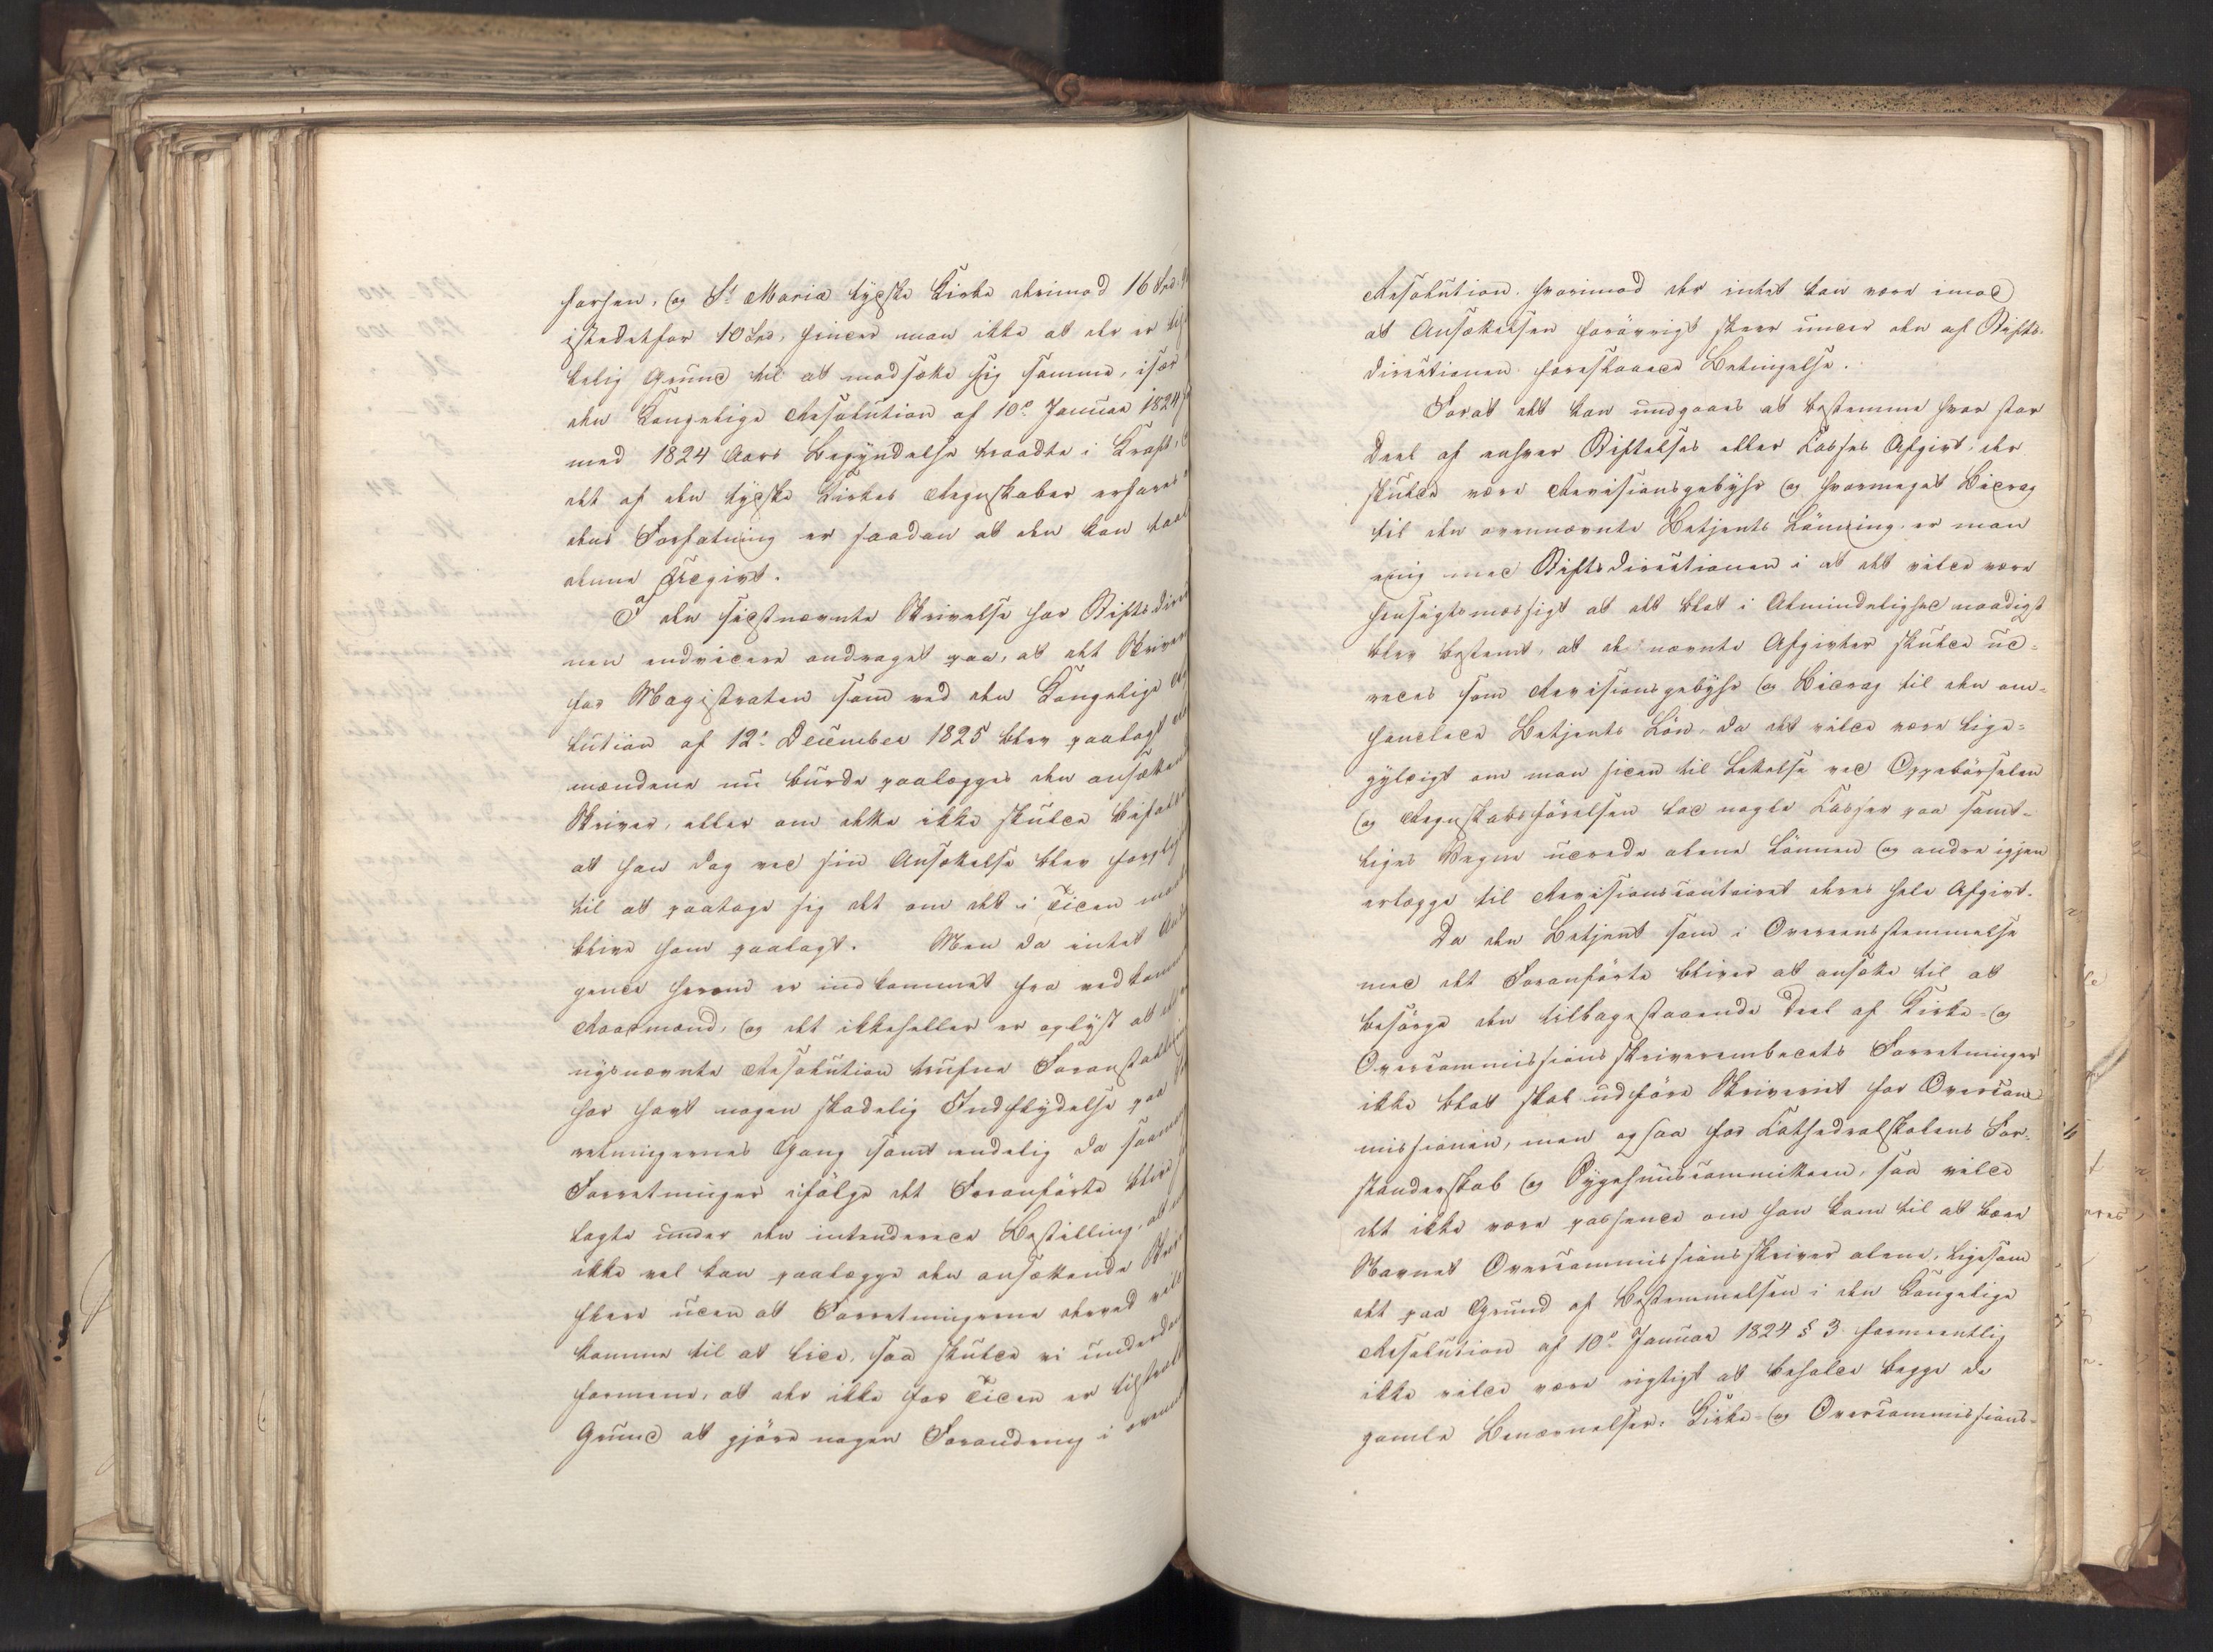 hersen, og St Mariæ tydske Kirke derimod 16 Spd.
istedetfor 10 Spd, finder man ikke at der er til
kelig Grund til at modsætte sig samme, især
den Kongelige Resolution af 10de Januar 1824
med 1824 Aars Begyndelse traadte i Kraft,
det af den tydske Kirkes Regnskaber erfares
dens Forfatning er saadan at den kan taal
denne Udgivt.
I den sidstnævnte Skrivelse har Stiftsdirec
nen endvidere andraget paa, at det Skriver
for Magistraten som ved den Kongelige Re
lution af 12te December 1825 blev paalagt
mændene nu burde paalægges den ansættend
Skriver, eller om dette ikke skulde bifald
at han dog ved sin Ansættelse blev forpligt
til at paatage sig det om det i Tiden maat
blive ham paalagt. Men da intet An
gende herom er indkommet fra vedkomm
Raadmænd, og det ikkeheller er oplyst at
nysnævnte Resolution trufne Foranstaltn
har havt nogen skadelig Indflydelse paa
retningernes Gang samt endelig da saam
Forretninger ifölge det Foranförte blev
lagte under den intenderede Bestilling, at
ikke vel kan paalægge den ansættende Skriv
flere uden at Forretningerne derved vil
komme til at lide, saa skulde vi underd
formene, at der ikke for Tiden er tilstræk
Grund at gjöre nogen Forandring i oven
Resolution. hvorimod der intet kan være imod
at Ansættelsen forövrigt skeer under den af Stifts-
directionen foreslaaede Betingelse.
Forat det kan undgaaes at bestemme hvor stor
Deel af enhver Stiftelses eller Kasses Afgivt, der
skulde være Revisionsgebyhr og hvormeget Bidrag
til den ovennævnte Betjents Lönning, er man
enig med Stiftsdirectionen i at det vilde være
hensigtsmæssigt at det blot i Almindelighed naadigst
blev bestemt, at de nævnte Afgivter skulde ud-
redes som Revisionsgebyhr og Bidrag til den om-
handlede Betjents Lön, da det vilde være lige-
gyldigt om man siden til Lettelse ved Oppebörselen
og Regnskabsförelsen lod nogle Kasser paa samt-
liges Vegne udrede alene Lönnen og andre igjen
erlægge til Revisionscontoiret deres hele Afgivt.
Da den Betjent som i Overeensstemmelse
med det Foranförte bliver at ansætte til at
besörge den tilbagestaaende Deel af Kirke- og
Overcommissionsskriverembedets Forretninger
ikke blot skal udföre Skriveriet for Overcom
missionen, men ogsaa for Kathedralskolens For-
standerskab og Sygehuuscommitteen, saa vilde
det ikke være passende om han kom til at bære
Navnet Overcommissionsskriver alene, ligesom
det paa Grund af Bestemmelsen i den Kongelige
Resolution af 10de Januar 1824 § 3 formeentlig
ikke vilde være rigtigt at beholde begge de
gamle Benævnelser: Kirke- og Overcommissions-